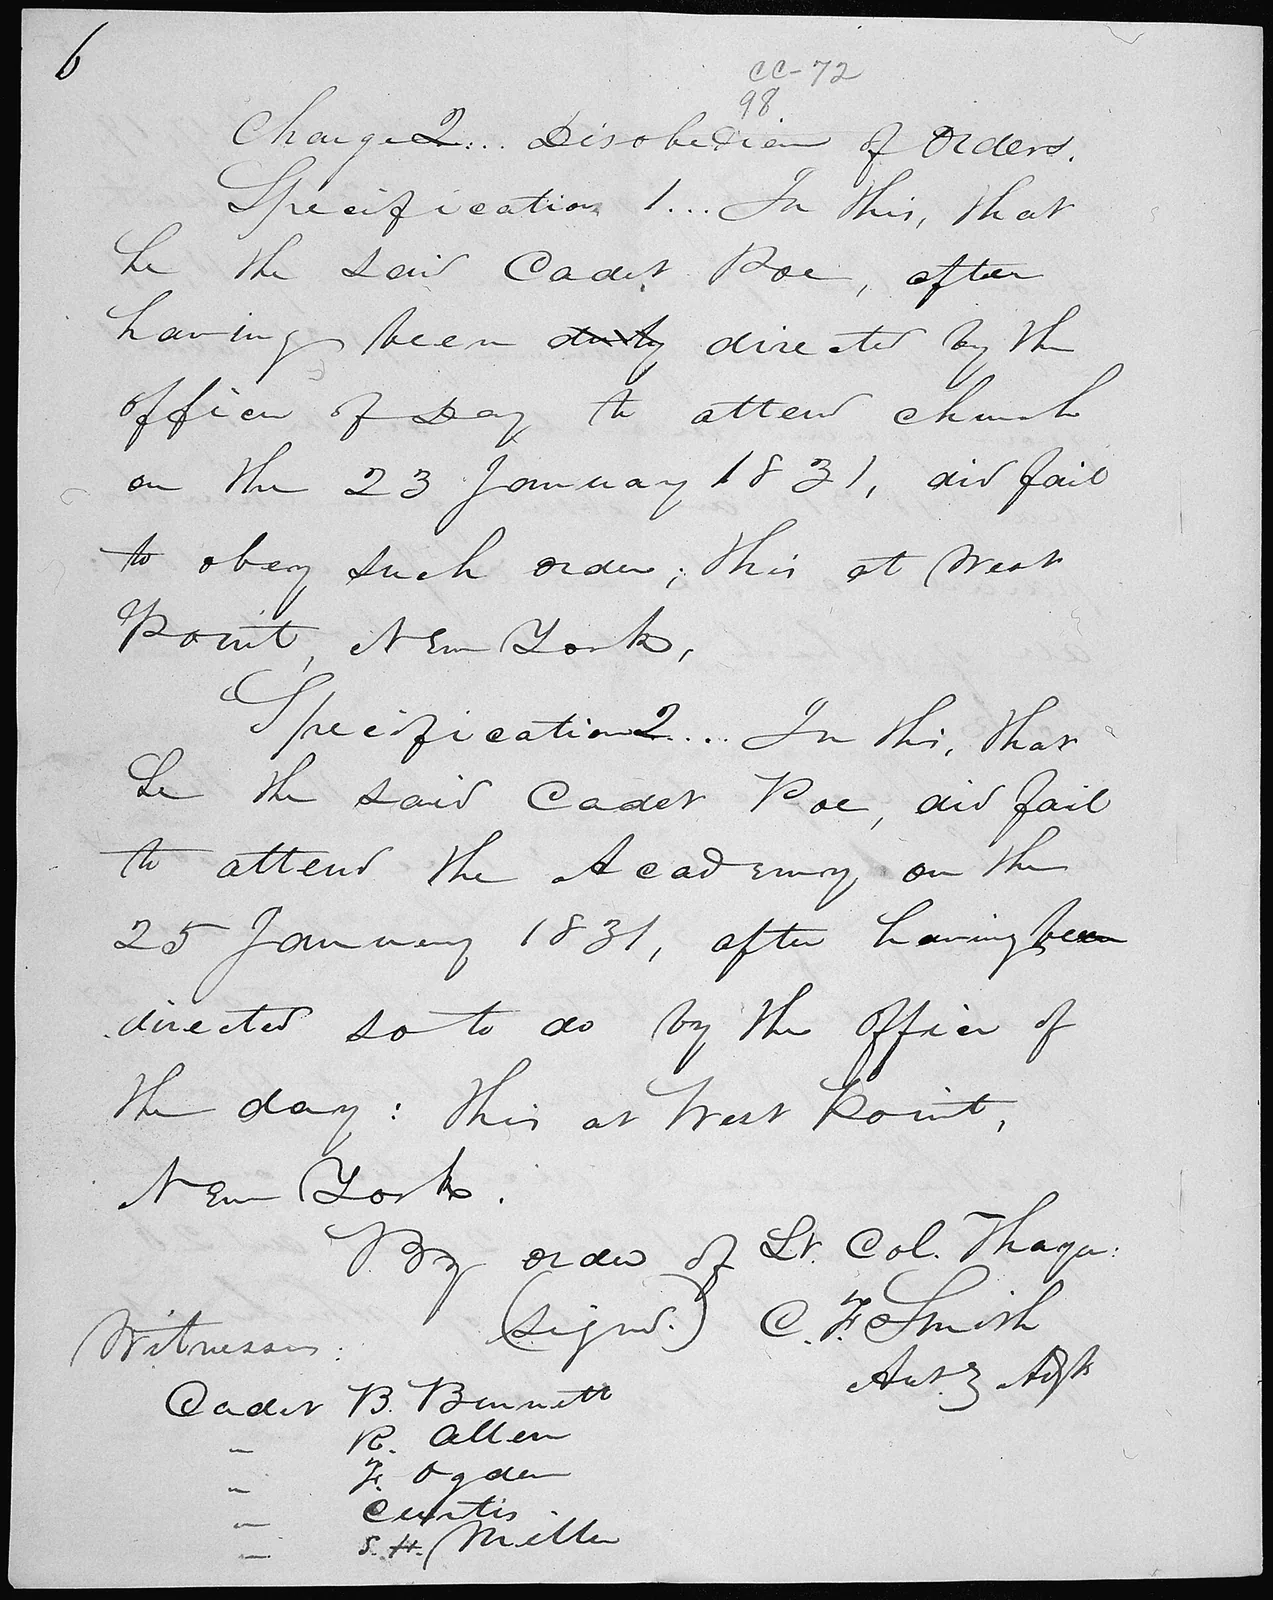 6
CC-72
98
Charge 2... Disobedience of Orders.
Specification 1... In this, that
he the said Cadet Poe, after
having been duly directed by the
officer of Day to attend church
on the 23 January 1831, did fail
to obey such order; this at West
Point, New York,
Specification 2.... In this, that
he the said Cadet Poe, did fail
to attend the Academy on the
25 January 1831, after having been
directed so to do by the officer of
the day: this at West Point,
New York.
By order of Lt. Col. Thayer:
(signd.) C. F. Smith
Witnesses: Adjt
Cadet B. Bennett
" R. Allen
" F. Ogden
" Curtis
" S. H. Miller